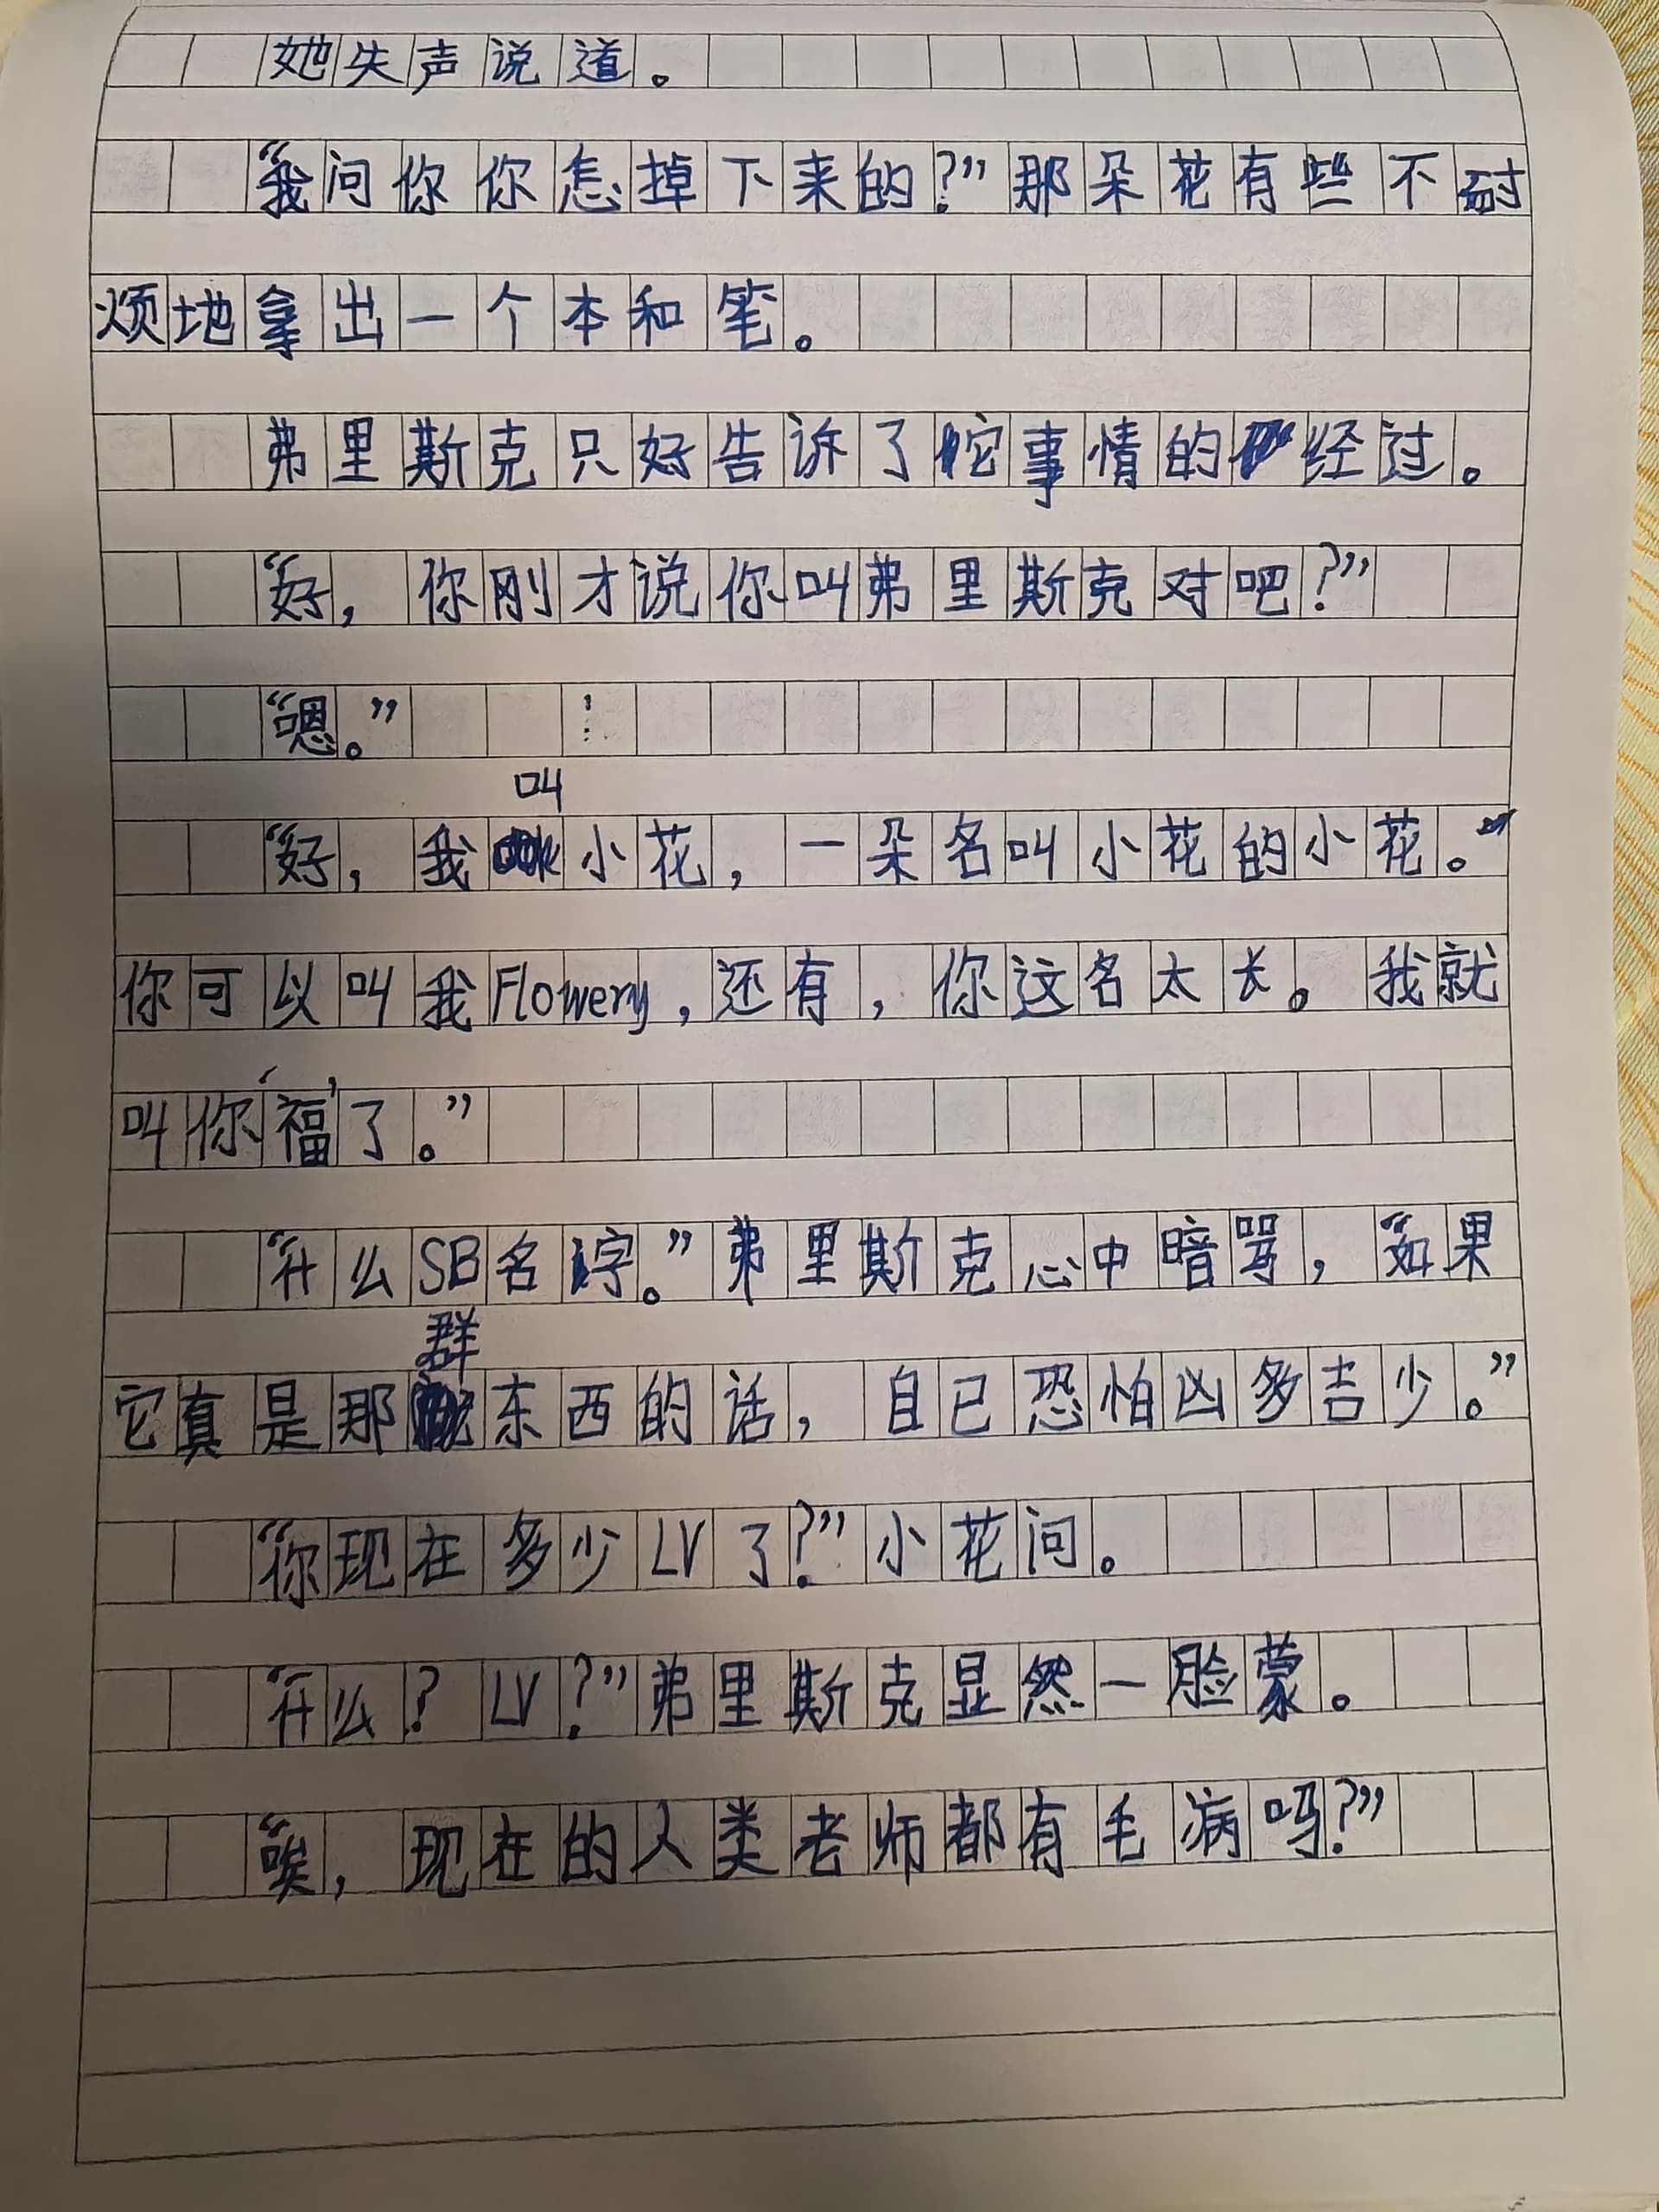 她失声说道。
“我问你你怎掉下来的?”那朵花有些不耐
烦地拿出一个本和笔。
弗里斯克只好告诉了它事情的经过。
“好,你刚才说你叫弗里斯克对吧?”
“嗯。”
“好,我叫小花,一朵名叫小花的小花。
你可以叫我Flowery,还有,你这名太长。我就
叫你‘福’了。”
“什么SB名字。”弗里斯克心中暗骂,“如果
它真是那群东西的话,自已恐怕凶多吉少。”
“你现在多少LV了?”小花问。
“什么?LV?”弗里斯克显然一脸蒙。
“唉,现在的人类老师都有毛病吗?”